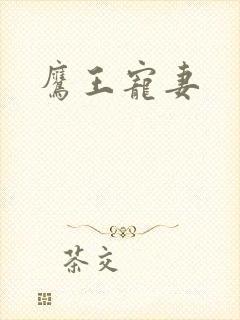 鷹王寵妻
茶交